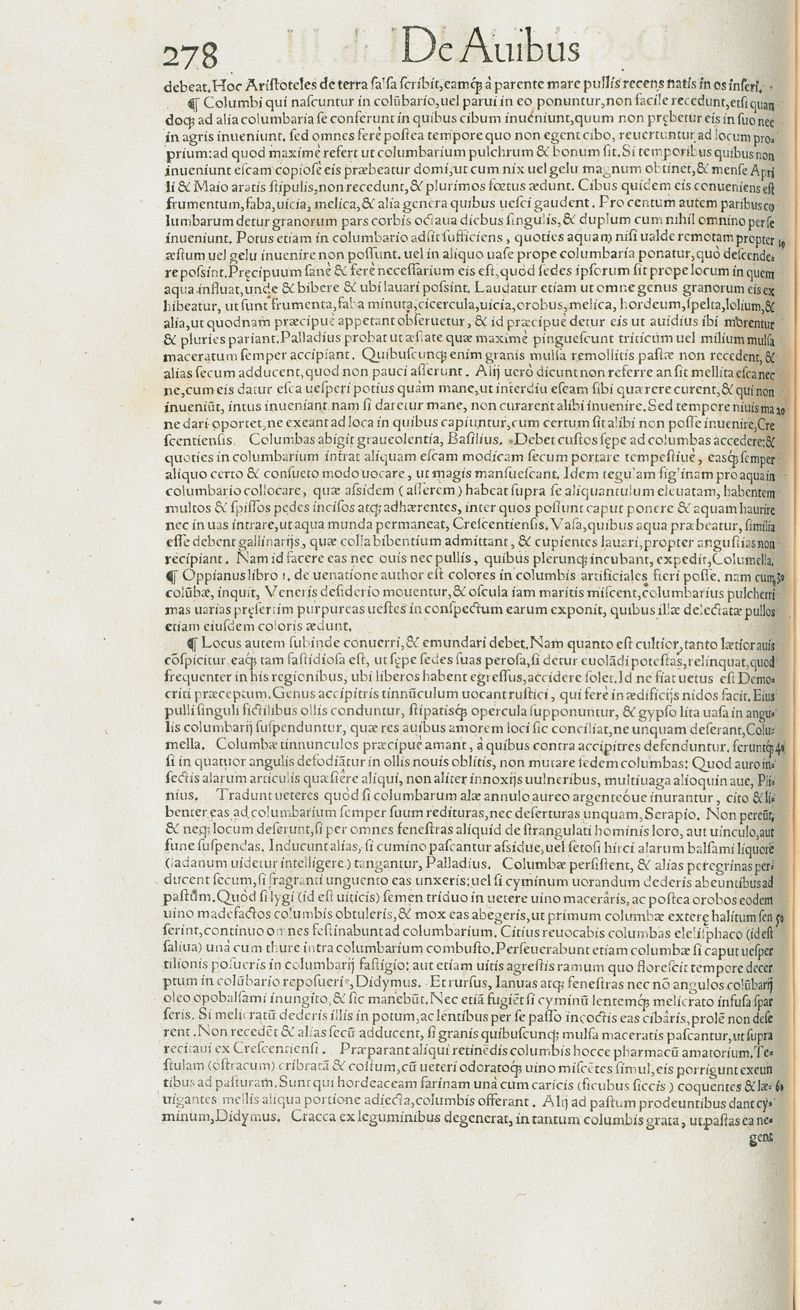 278 De Auibus
debeat. Hoc Ariſtoteles de terra ſalſa ſcribit, eamq́; à parente mare pullis recens natis in os inſeri.
¶ Columbi qui naſcuntur in colūbario, uel parui in eo ponuntur, non facile recedunt, etſi quan
doq; ad alia columbaria ſe conferunt in quibus cibum inueniunt, quum non prębetur eis in ſuo nec
in agris inueniunt. ſed omnes ferè poſtea tempore quo non egent cibo, reuertuntur ad locum pro⸗
prium: ad quod maximè refert ut columbarium pulchrum & bonum ſit. Si temporibus quibus non
inueniunt eſcam copioſè eis præbeatur domi, ut cum nix uel gelu magnum obtinet, & menſe Apri
li & Maio aratis ſtipulis, non recedunt, & plurimos fœtus ædunt. Cibus quidem eis conueniens eſt
frumentum, faba, uicia, melica, & alia genera quibus ueſci gaudent. Pro centum autem paribus co
lumbarum detur granorum pars corbis octaua diebus ſingulis, & duplum cum nihil omnino per ſe
inueniunt. Potus etiam in columbario adſit ſufficiens, quoties aquam niſi ualde remotam propter 10
æſtum uel gelu inuenire non poſſunt. uel in aliquo uaſe prope columbaria ponatur, quò deſcende⸗
re poſsint. Pręcipuum ſanè & ferè neceſſarium eis eſt, quòd ſedes ipſorum ſit prope locum in quem
aqua influat, unde & bibere & ubi lauari poſsint. Laudatur etiam ut omne genus granorum eis ex
hibeatur, ut ſunt frumenta, faba minuta, cicercula, uicia, orobus, melica, hordeum, ſpelta, lolium, &
alia, ut quodnam præcipuè appetant obſeruetur, & id præcipuè detur eis ut auidius ibi morentur
& pluries pariant. Palladius probat ut æſtate quæ maximè pingueſcunt triticum uel milium mulſa
maceratum ſemper accipiant. Quibuſcunq; enim granis mulſa remollitis paſtæ non recedent, &
alias ſecum adducent, quod non pauci aſſerunt. Alij uerò dicunt non referre an ſit mellita eſca nec
ne, cum eis datur eſca ueſperi potius quàm mane, ut interdiu eſcam ſibi quærere curent, & qui non
inueniūt, intus inueniant. nam ſi daretur mane, non curarent alibi inuenire. Sed tempore niuis ma 20
ne dari oportet, ne exeant ad loca in quibus capiuntur, cum certum ſit alibi non poſſe inuenire, Cre
ſcentienſis. Columbas abigit graueolentia, Baſilius. Debet cuſtos ſępe ad columbas accedere: &
quoties in columbarium intrat aliquam eſcam modicam ſecum portare tempeſtiuè, easq́; ſemper
aliquo certo & conſueto modo uocare, ut magis manſueſcant. Idem tegulam figlinam pro aqua in
columbario collocare, quæ aſsidem (aſſerem) habeat ſupra ſe aliquantulum eleuatam, habentem
multos & ſpiſſos pedes inciſos atq; adhærentes, inter quos poſſunt caput ponere & aquam haurire
nec in uas intrare, ut aqua munda permaneat, Creſcentienſis. Vaſa, quibus aqua præbeatur, ſimilia
eſſe debent gallinarijs, quæ colla bibentium admittant, & cupientes lauari, propter anguſtias non
recipiant. Nam id facere eas nec ouis nec pullis, quibus plerunq; incubant, expedit, Columella.
¶ Oppianus libro 1. de uenatione author eſt colores in columbis artificiales fieri poſſe. nam cum 30
colūbæ, inquit, Veneris deſiderio mouentur, & oſcula iam maritis miſcent, columbarius pulcherri
mas uarias pręſertim purpureas ueſtes in conſpectum earum exponit, quibus illæ delectatæ pullos
etiam eiuſdem coloris ædunt.
¶ Locus autem ſubinde conuerri, & emundari debet. Nam quanto eſt cultior, tanto lætior auis
cōſpicitur. eaq́; tam faſtidioſa eſt, ut ſępe ſedes ſuas peroſa, ſi detur euolādi poteſtas, relinquat, quod
frequenter in his regionibus, ubi liberos habent egreſſus, accidere ſolet. Id ne fiat uetus eſt Demo⸗
criti præceptum. Genus accipitris tinnūculum uocant ruſtici, qui ferè in ædificijs nidos facit. Eius
pulli ſinguli fictilibus ollis conduntur, ſtipatisq́; opercula ſupponuntur, & gypſo lita uaſa in angu⸗
lis columbarij ſuſpenduntur, quæ res auibus amorem loci ſic conciliat, ne unquam deſerant, Colu⸗
mella. Columbæ tinnunculos præcipuè amant, à quibus contra accipitres defenduntur. feruntq́; 40
ſi in quatuor angulis defodiātur in ollis nouis oblitis, non mutare ſedem columbas: Quod auro in⸗
ſectis alarum articulis quæſiêre aliqui, non aliter innoxijs uulneribus, multiuaga alioquin aue, Pli⸗
nius. Tradunt ueteres quòd ſi columbarum alæ annulo aureo argenteóue inurantur, citò & li⸗
benter eas ad columbarium ſemper ſuum redituras, nec deſerturas unquam, Serapio. Non pereūt,
& neq; locum deſerunt, ſi per omnes feneſtras aliquid de ſtrangulati hominis loro, aut uinculo, aut
fune ſuſpendas. Inducunt alias, ſi cumino paſcantur aſsiduè, uel ſetoſi hirci alarum balſami liquore
(ladanum uidetur intelligere) tangantur, Palladius. Columbæ perſiſtent, & alias peregrinas per⸗
ducent ſecum, ſi fragranti unguento eas unxeris: uel ſi cyminum uorandum dederis abeuntibus ad
paſtūm. Quòd ſi lygi (id eſt uiticis) ſemen triduo in uetere uino maceràris, ac poſtea orobos eodem
uino madefactos columbis obtuleris, & mox eas abegeris, ut primum columbæ exterę halitum ſen 50
ſerint, continuò omnes feſtinabunt ad columbarium. Citius reuocabis columbas eleliſphaco (id eſt
ſaluia) unà cum thure intra columbarium combuſto. Perſeuerabunt etiam columbæ ſi caput ueſper
tilionis poſueris in columbarij faſtigio: aut etiam uitis agreſtis ramum quo floreſcit tempore decer
ptum in colūbario repoſueris, Didymus. Et rurſus, Ianuas atq; feneſtras nec nō angulos colūbarij
oleo opobalſami inungito, & ſic manebūt. Nec etiā fugiēt ſi cyminū lentemq́; melicrato infuſa ſpar
ſeris. Si melicratū dederis illis in potum, ac lentibus per ſe paſſo incoctis eas cibàris, prolē non deſe
rent. Non recedēt & alias ſecū adducent, ſi granis quibuſcunq; mulſa maceratis paſcantur, ut ſupra
recitaui ex Creſcentienſi. Præparant aliqui retinēdis columbis hocce pharmacū amatorium. Te⸗
ſtulam (oſtracum) cribratā & coſtum, cū ueteri odoratoq́; uino miſcētes ſimul, eis porrigunt exeun
tibus ad paſturam. Sunt qui hordeaceam farinam unà cum caricis (ficubus ſiccis) coquentes & læ⸗ 60
uigantes mellis aliqua portione adiecta, columbis offerant. Alij ad paſtum prodeuntibus dant cy⸗
minum, Didymus. Cracca ex leguminibus degenerat, in tantum columbis grata, ut paſtas ea ne⸗
gent